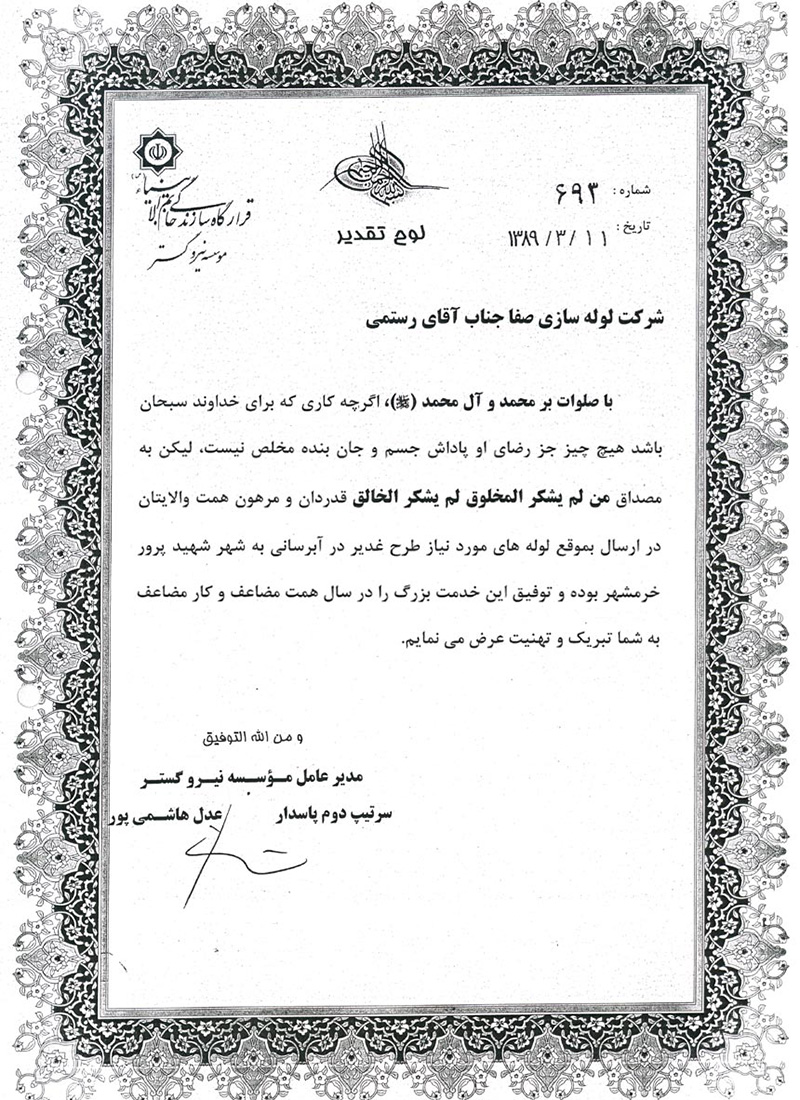 قرارگاه سازندگی خاتم الانبیاء
مؤسسه نیرو گستر
لوح تقدیر
شماره: ۶۹۳
تاریخ: ۱۳۸۹/۳/۱۱
شرکت لوله سازی صفا جناب آقای رستمی
با صلوات بر محمد و آل محمد (ﷺ)، اگرچه کاری که برای خداوند سبحان
باشد هیچ چیز جز رضای او پاداش جسم و جان بنده مخلص نیست، لیکن به
مصداق من لم یشکر المخلوق لم یشکر الخالق قدردان و مرهون همت والایتان
در ارسال بموقع لوله های مورد نیاز طرح غدیر در آبرسانی به شهر شهید پرور
خرمشهر بوده و توفیق این خدمت بزرگ را در سال همت مضاعف و کار مضاعف
به شما تبریک و تهنیت عرض می نمایم.
و من الله التوفیق
مدیر عامل مؤسسه نیرو گستر
سرتیپ دوم پاسدار عدل هاشمی پور